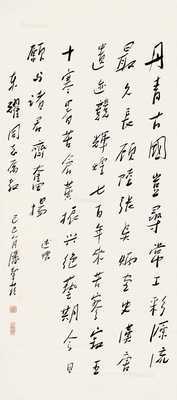 丹青古國豈尋常工彩源流
最久長顧陸張吳炳畫史漢唐
遺迹競輝煌七百年來苦寥寂五
十寒暑苦含英振興絕藝期今日
願與諸君齊奮揚
述懷
東耀同志屬 己巳 月潘絜茲